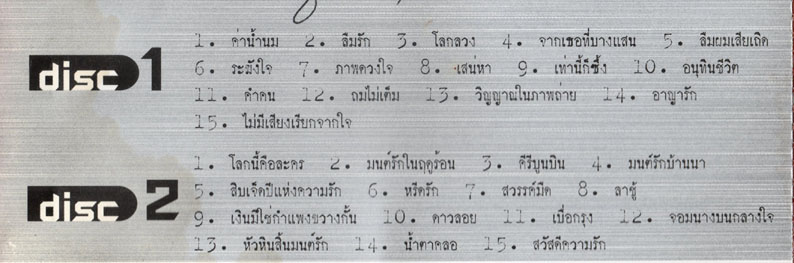 disc 1
1. ค่าน้ำนม 2. ลืมรัก 3. โลกลวง 4. จากเธอที่บางแสน 5. ลืมผมเสียเถิด
6. ระฆังใจ 7. ภาพดวงใจ 8. เสน่หา 9. เท่านี้ก็ซึ้ง 10. อนุทินชีวิต
11. คำคน 12. ถมไม่เต็ม 13. วิญญาณในภาพถ่าย 14. อาญารัก
15. ไม่มีเสียงเรียกจากใจ
disc 2
1. โลกนี้คือละคร 2. มนต์รักในฤดูร้อน 3. คีรีบูนบิน 4. มนต์รักบ้านนา
5. สิบเจ็ดปีแห่งความรัก 6. หรีดรัก 7. สวรรค์มืด 8. ลาชู้
9. เงินมิใช่กำแพงขวางกั้น 10. ดาวลอย 11. เบื่อกรุง 12. จอมนางบนกลางใจ
13. หัวหินสิ้นมนต์รัก 14. น้ำตาคลอ 15. สวัสดีความรัก